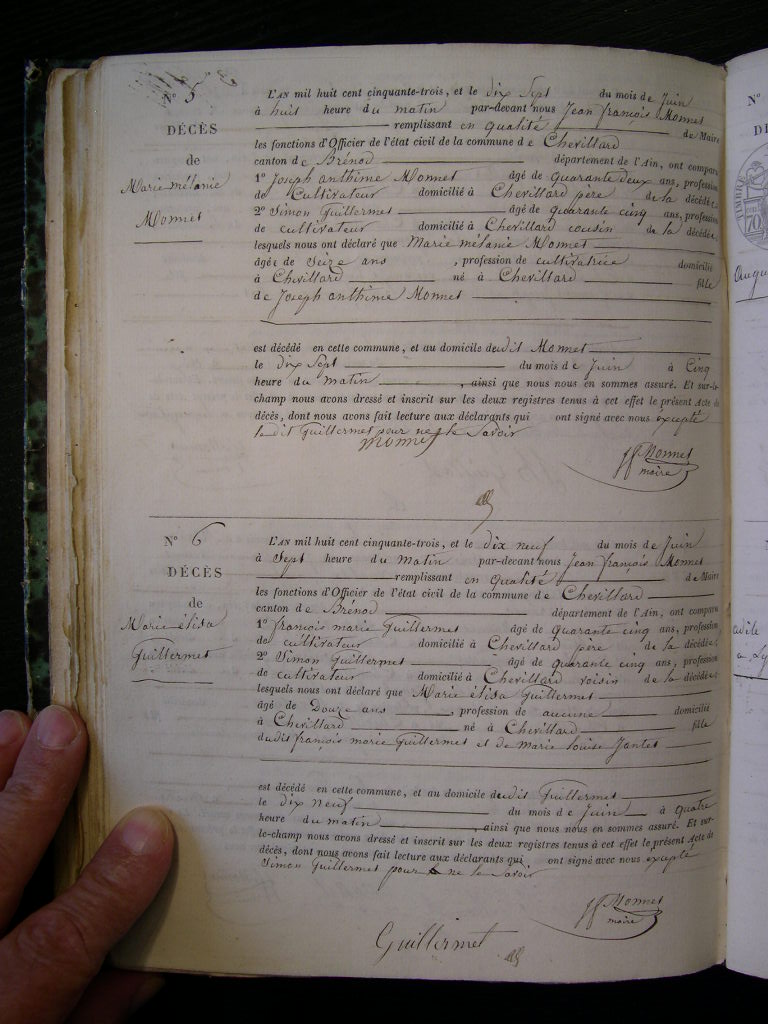 N° 5
DÉCÈS
de
Marie mélanie
Monnet
L'AN mil huit cent cinquante-trois, et le dix sept du mois de Juin
à huit heure du matin par-devant nous Jean françois Monnet
remplissant en qualité de Maire
les fonctions d'Officier de l'état civil de la commune de Chevillard
canton de Brénod département de l'Ain, ont comparu
1° Joseph anthime Monnet âgé de quarante deux ans, profession
de Cultivateur domicilié à Chevillard père de la décédée,
2° Simon Guillermet âgé de quarante cinq ans, profession
de cultivateur domicilié à Chevillard cousin de la décédée,
lesquels nous ont déclaré que Marie mélanie Monnet
âgée de Seize ans , profession de cultivatrice domicilié
à Chevillard né à Chevillard fille
de Joseph anthime Monnet
est décédé en cette commune, et au domicile dudit Monnet
le dix Sept du mois de Juin à Cinq
heure du matin , ainsi que nous nous en sommes assuré. Et sur-le-
champ nous avons dressé et inscrit sur les deux registres tenus à cet effet le présent Acte de
décès, dont nous avons fait lecture aux déclarants qui ont signé avec nous éxcepté
le dit Guillermet pour ne le Savoir
Monnet
Monnet
maire
N° 6
DÉCÈS
de
Marie élisa
Guillermet
L'AN mil huit cent cinquante-trois, et le dix neuf du mois de Juin
à Sept heure du matin par-devant nous Jean françois Monnet
remplissant en qualité de Maire
les fonctions d'Officier de l'état civil de la commune de Chevillard
canton de Brénod département de l'Ain, ont comparu
1° françois marie Guillermet âgé de quarante cinq ans, profession
de cultivateur domicilié à Chevillard père de la décédée,
2° Simon Guillermet âgé de quarante cinq ans, profession
de cultivateur domicilié à Chevillard voisin de la décédée
lesquels nous ont déclaré que Marie élisa Guillermet
âgé de Douze ans , profession de aucune domicilié
à Chevillard né à Chevillard fille
dudit françois marie Guillermet et de marie louise Jantet
est décédé en cette commune, et au domicile dudit Guillermet
le dix neuf du mois de Juin à quatre
heure du matin , ainsi que nous nous en sommes assuré. Et sur-
le-champ nous avons dressé et inscrit sur les deux registres tenus à cet effet le présent Acte de
décès, dont nous avons fait lecture aux déclarants qui ont signé avec nous éxcepté
Simon Guillermet pour ne le Savoir
Monnet
maire
Guillermet
N°